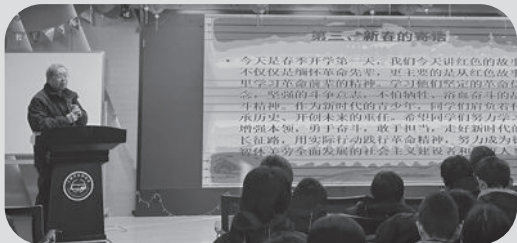 第三、新春的寄语
今天是春季开学第一天，我们今天讲红色的故事
不仅仅是缅怀革命先辈，更主要的是从红色故事
里学习革命前辈的精神，学习他们坚定的革命信
念，坚强的斗争意志，不怕牺牲、浴血奋斗的战
斗精神。作为新时代的青少年，同学们肩负着传
承历史、开创未来的重任。希望同学们努力学习
增强本领，勇于奋斗，敢于担当，走好新时代的
长征路，用实际行动践行革命精神，努力成为德
智体美劳全面发展的社会主义建设者和接班人